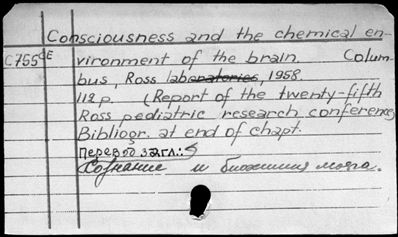 Consciousness and the chemical en-
C755CE vironment of the brain. Colum-
bus, Ross laboratories, 1958
112 p. (Report of the twenty-fifth
Ross pediatric research conference
Bibliogr. at end of chapt.
Перевод загл.:
Сознание и биохимия мозга.